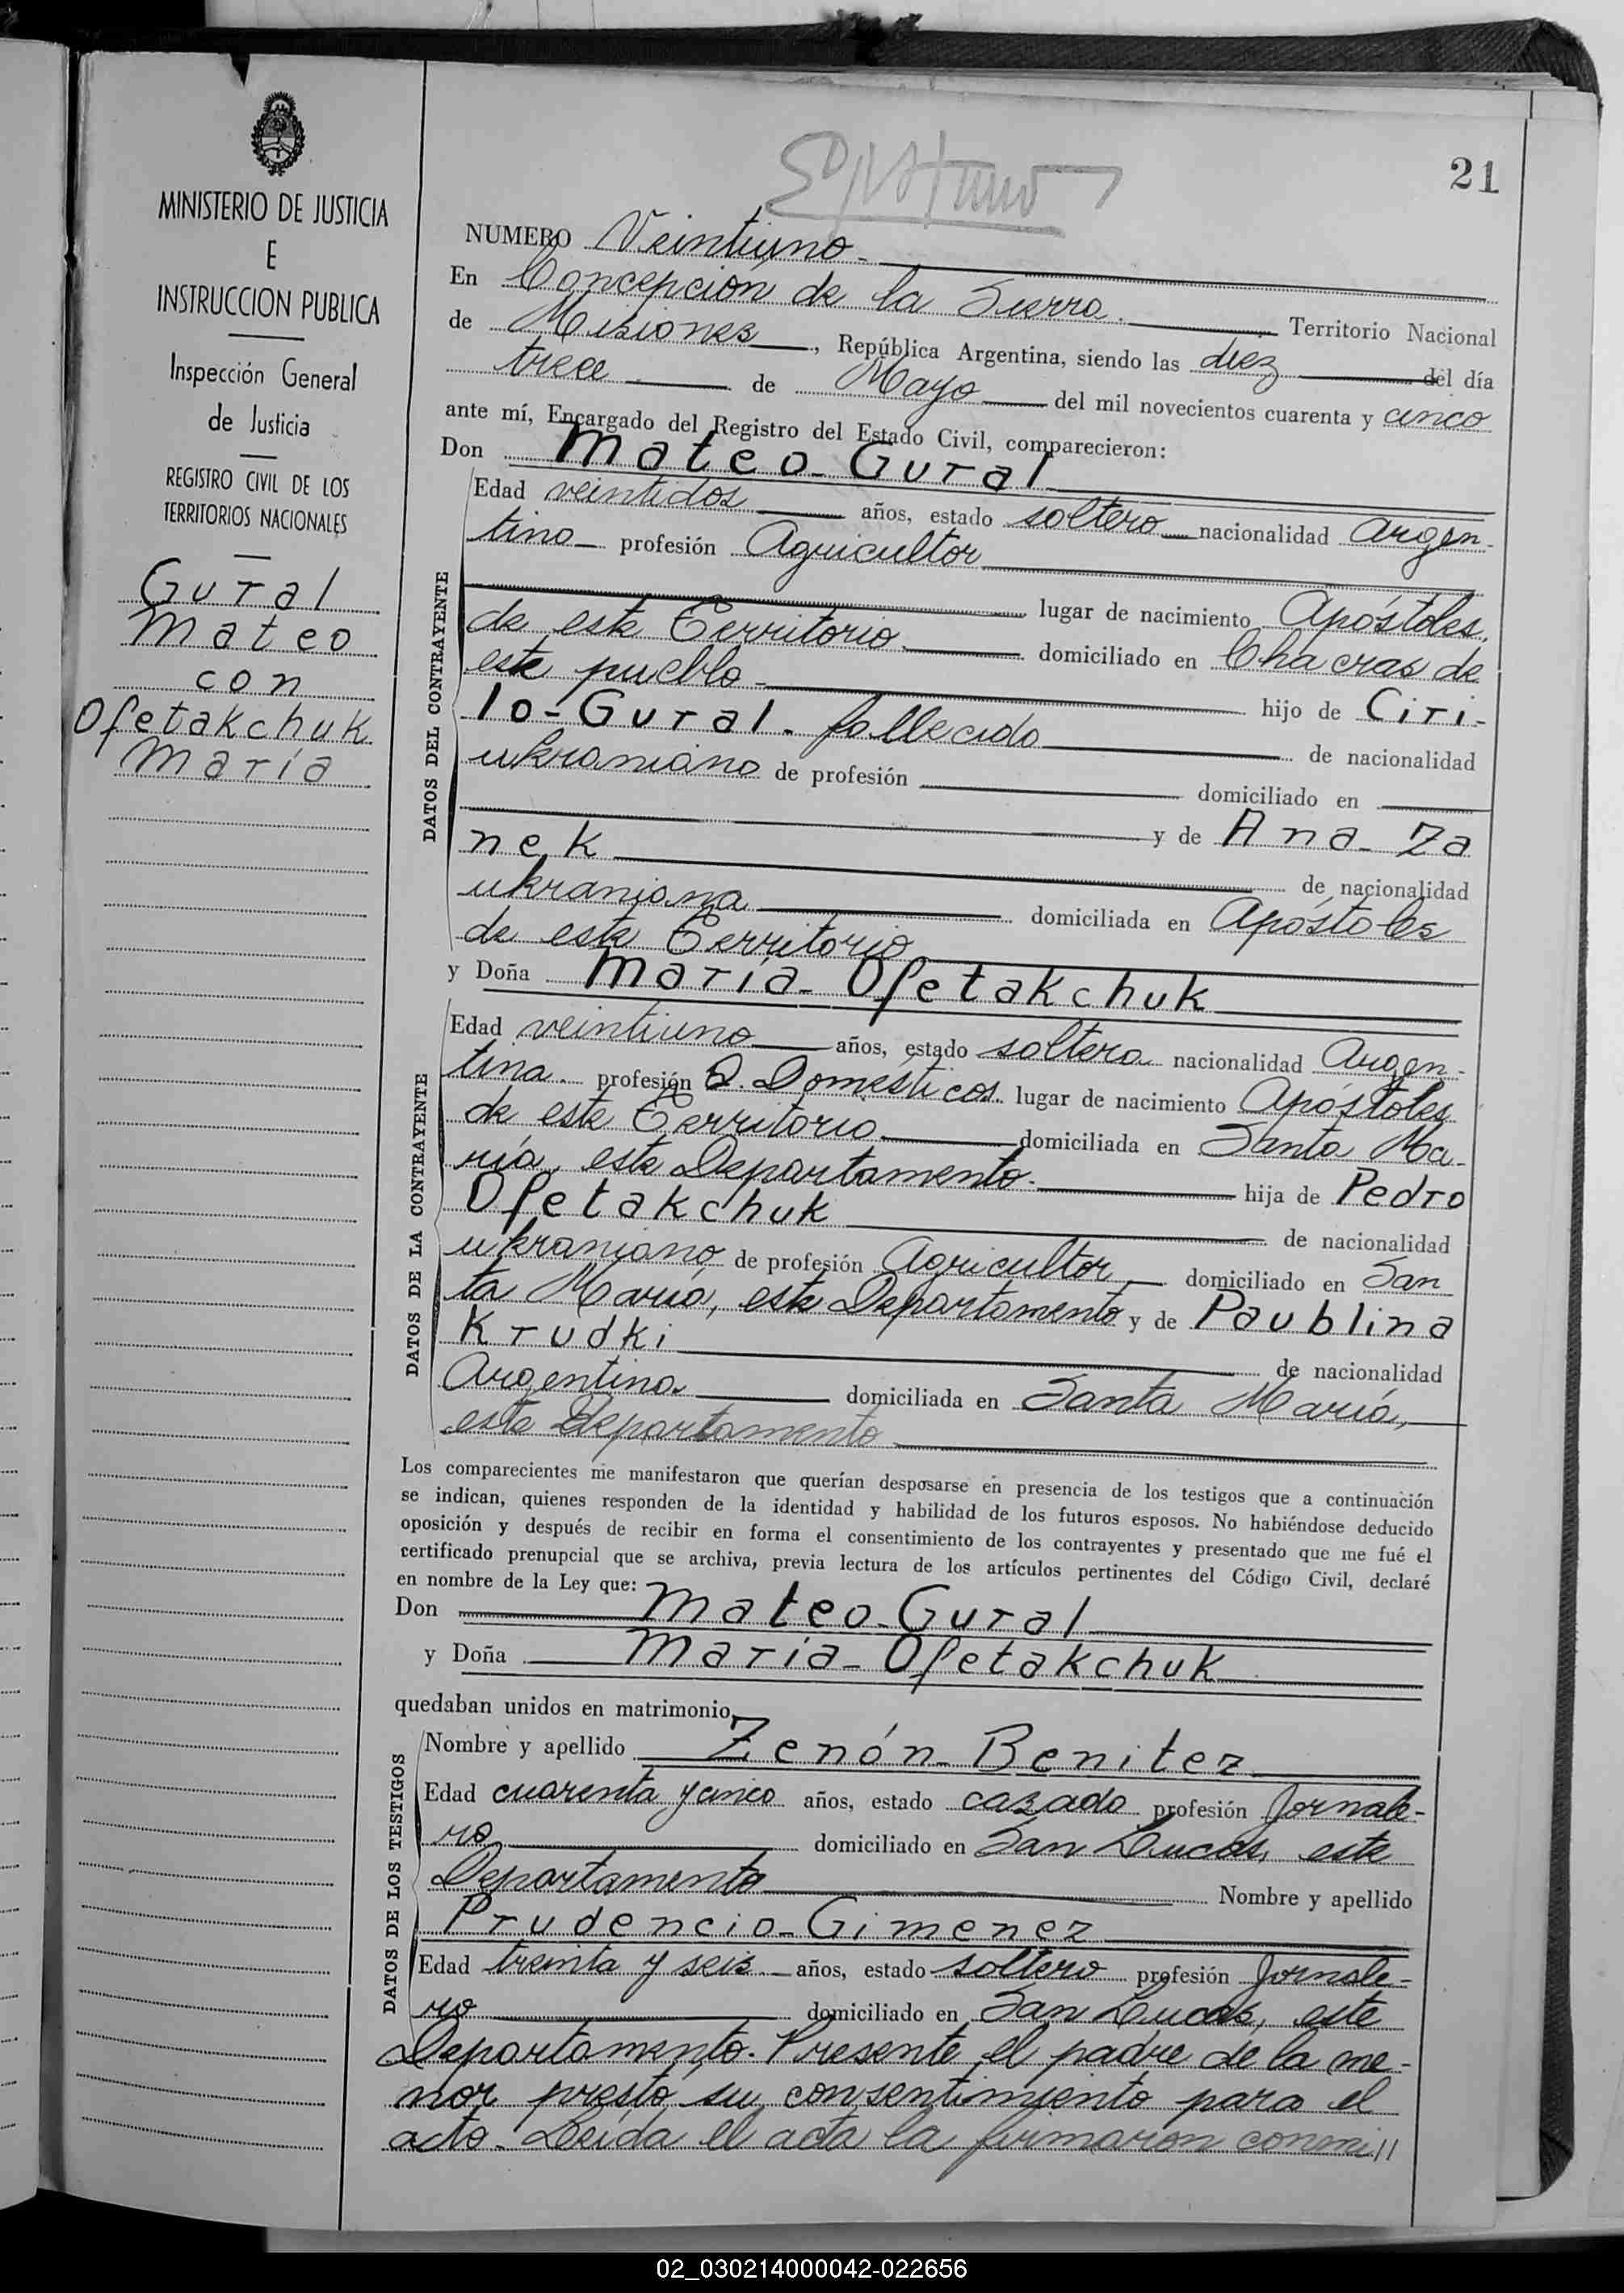 MINISTERIO DE JUSTICIA
E
INSTRUCCION PUBLICA
Inspección General
de Justicia
REGISTRO CIVIL DE LOS
TERRITORIOS NACIONALES
Gural
Mateo
con
Ofetakchuk
María
21
NUMERO Veintiuno
En Concepción de la Sierra. Territorio Nacional
de Misiones, República Argentina, siendo las diez del día
trece de Mayo del mil novecientos cuarenta y cinco
ante mí, Encargado del Registro del Estado Civil, comparecieron:
Don Mateo Gural
DATOS DEL CONTRAYENTE
Edad veintidos años, estado soltero nacionalidad Argen-
tino profesión Agricultor
lugar de nacimiento Apóstoles,
de este Territorio. domiciliado en Chacras de
este pueblo hijo de Ciri-
lo-Gural. fallecido de nacionalidad
ukraniano de profesión domiciliado en
y de Ana Za
nek de nacionalidad
ukraniana domiciliada en Apóstoles
de este Territorio
y Doña María Ofetakchuk
DATOS DE LA CONTRAYENTE
Edad veintiuno años, estado soltera nacionalidad Argen-
tina. profesión Q. Domésticos lugar de nacimiento Apóstoles
de este Territorio. domiciliada en Santa Ma-
ría, este Departamento. hija de Pedro
Ofetakchuk de nacionalidad
ukraniano de profesión Agricultor domiciliado en San
ta María, este Departamento y de Paublina
Krudki de nacionalidad
Argentina domiciliada en Santa María,
este Departamento
Los comparecientes me manifestaron que querían desposarse en presencia de los testigos que a continuación
se indican, quienes responden de la identidad y habilidad de los futuros esposos. No habiéndose deducido
oposición y después de recibir en forma el consentimiento de los contrayentes y presentado que me fué el
certificado prenupcial que se archiva, previa lectura de los artículos pertinentes del Código Civil, declaré
en nombre de la Ley que:
Don Mateo Gural
y Doña María Ofetakchuk
quedaban unidos en matrimonio.
DATOS DE LOS TESTIGOS
Nombre y apellido Zenón Benitez
Edad cuarenta y cinco años, estado casado profesión Jornale-
ro domiciliado en San Lucas, este
Departamento Nombre y apellido
Prudencio Gimenez
Edad treinta y seis años, estado soltero profesión Jornale-
ro domiciliado en San Lucas, este
Departamento. Presente el padre de la me-
nor prestó su consentimiento para el
acto. Leida el acta la firmaron conmi//
02_030214000042-022656